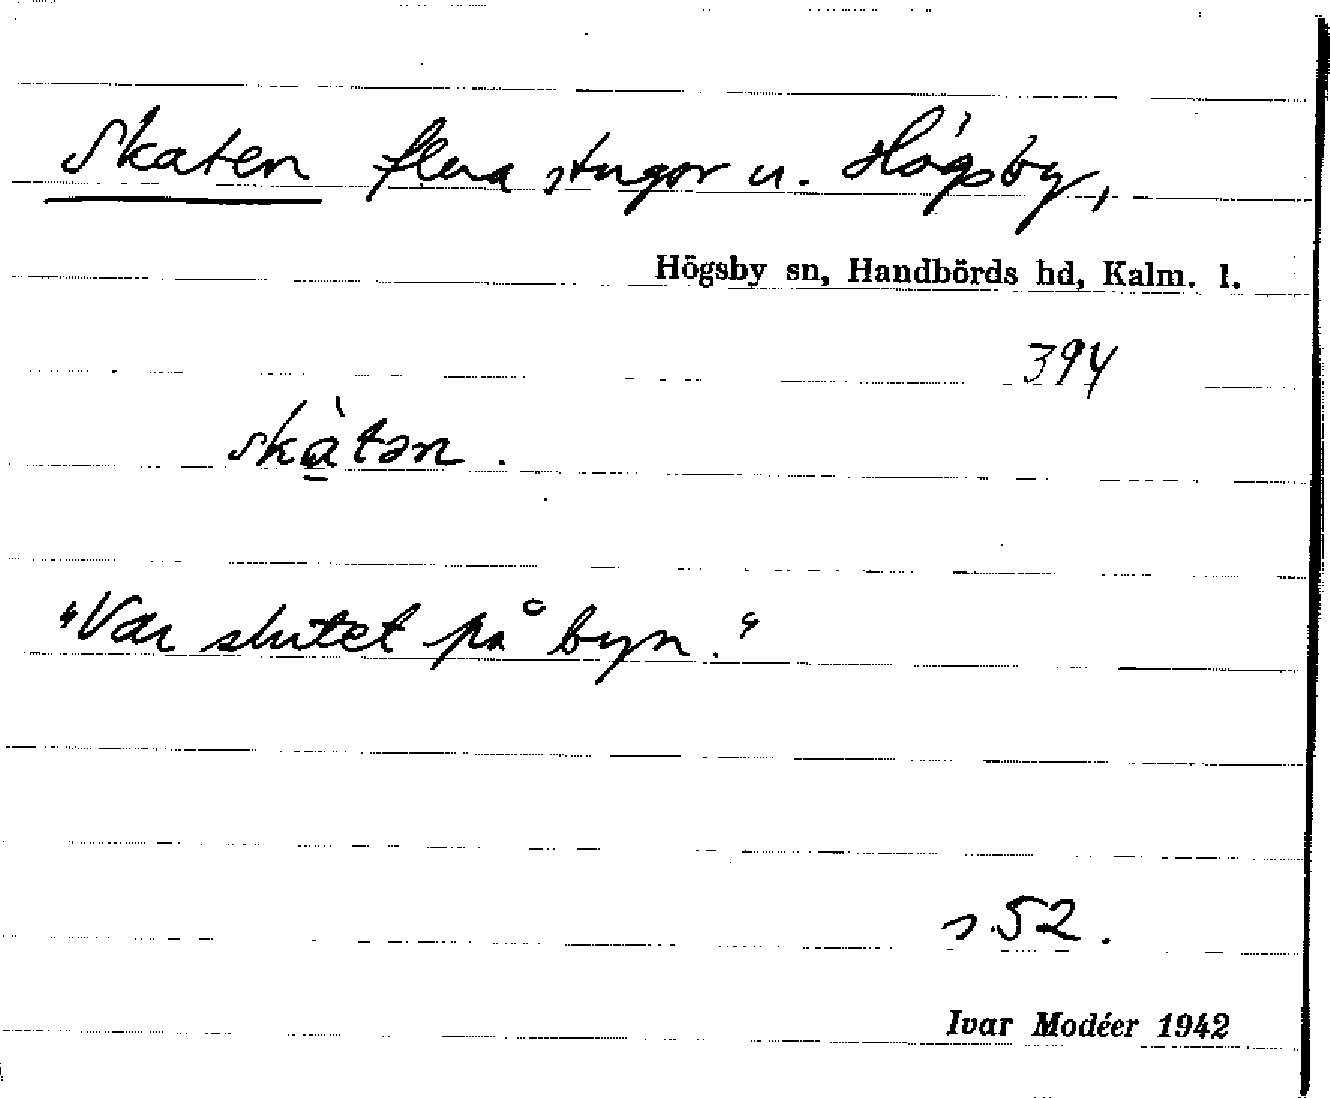 Skaten flera stugor u. Högsby,
Högsby sn, Handbörds hd, Kalm. l.
394
skà̱tən.
"Var slutet på byn."
s. 52.
Ivar Modéer 1942